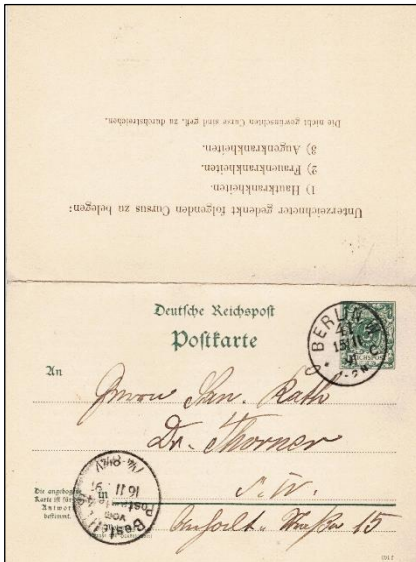 Unterzeichneter gedenkt folgenden Cursus zu belegen:
1) Hautkrankheiten.
2) Frauenkrankheiten.
3) Augenkrankheiten.
Die nicht gewünschten Curse sind gefl. zu durchstreichen.
Deutsche Reichspost
Postkarte
BERLIN W
41
15/11
91
An
Herrn San. Rath
Dr. Thorner
S.W.
Anhalt-Straße 15
in
Die angebogene
Karte ist für
Antwort
bestimmt.
Bestellt
vom
Postamte
16/11 91
7¼-8¼V